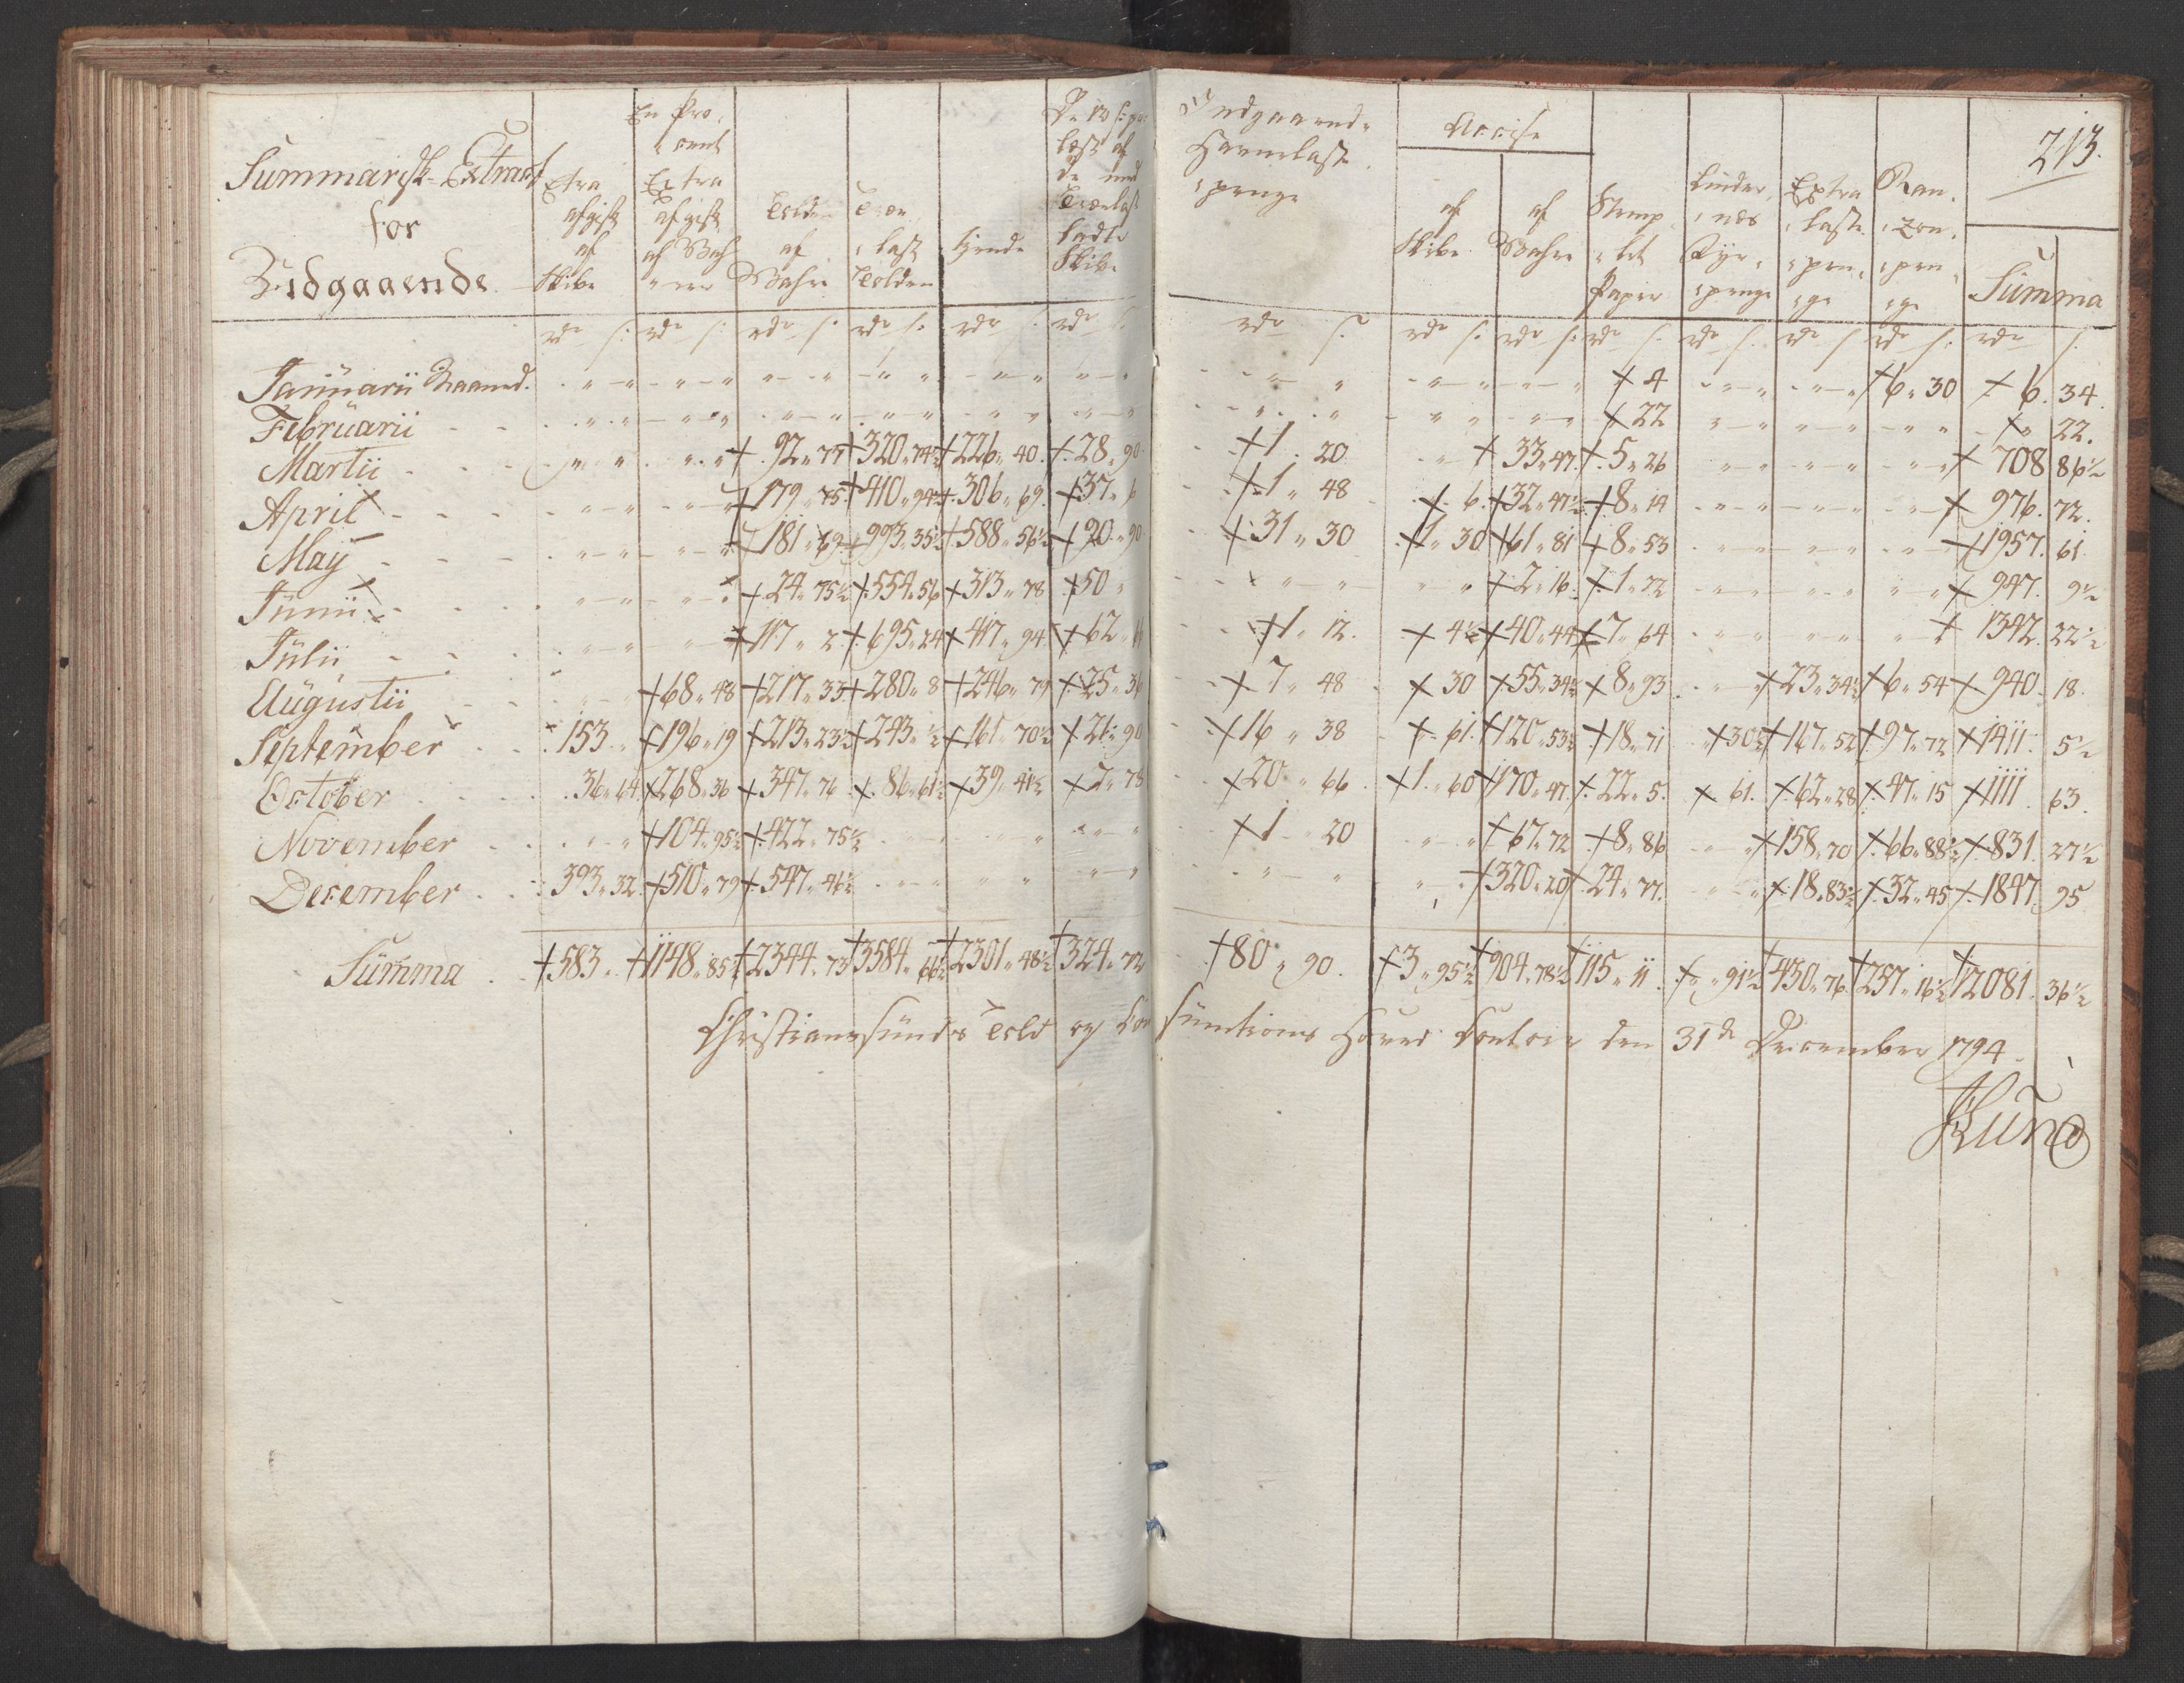 Summarisk Extract
for
Udgaaende
Extra afgift af Skibe
En Procent Extra afgift af Wahrene
Tolden af Wahre
Trælast Tolden
Tiende
læst af de med Trælast ladte Skibe
Indgaaende Havnelastepenge
Accise
af Skibe
af Wahre
Stemplet Papir
Lindesnæs Fyrpenge
Extra lastepenge
Ranzonpenge
213.
Summa
rdr s: rdr s: rdr s: rdr s: rdr s: rdr s: rdr s: rdr s: rdr s: rdr s: rdr s: rdr s: rdr s: rdr s.
Januarii Maaned. 4 6 " 30 6. 34.
Februarii 22 " 22.
Martii 92 " 77 320 " 74½ 226 " 40. 28 " 90 1. 20 33 " 47. 5 " 26 708 86½
April 179 " 75 410 " 94½ 306 " 69. 37 " 6 1 " 48 6. 32 " 47½ 8 " 14 976. 72.
May 181 " 69 993 " 35½ 588 " 56½ 90 " 90 31 " 30 1 " 30 61 " 81 8 " 53 1957. 61.
Junii 24 " 75½ 554 " 56 313 " 78 50 " 2 " 16. 1 " 72 947. 9½
Julii 117 " 2. 695 " 24 417 " 94. 62 " 1 " 12. 4½ 40 " 44 7 " 64 1342. 22½
Augustii 68 " 48 217 " 33 280 " 8 246 " 79 25 " 36 7 " 48 30 55 " 34½ 8 " 93 23 " 34½ 6 " 54 940 18.
September 153 " 196 " 19 213 " 23½ 243 " ½ 161 " 70½ 21 " 90 16 " 38 61. 120 " 53½ 18 " 71 30½ 167 " 52 97 " 72 1411. 5½
October 36 " 64 268 " 36 347 " 76 86 " 61½ 39 " 41½ 7 " 78 20 " 66 1 " 60 170 " 47. 22 " 5. 61. 62 " 28 47 " 15 1111. 63.
November 104 " 95½ 422 " 75½ 1 " 20 67 " 72 8 " 86 158 " 70 66 " 88½ 831. 27½
December 393 " 32. 510 " 79 547 " 46½ 320 " 20 24 " 77. 18 " 83½ 32 " 45 1847. 95
Summa 583 " 1148 " 85½ 2344 " 73 3584 " 66½ 2301 " 48½ 324 " 72 80 " 90. 3 " 95½ 904 " 78½ 115 " 11. " 91½ 430 " 76 257 " 16½ 12081. 36½
Christiansunds Told og Consumtions Hoved Contoir den 31de December 1794